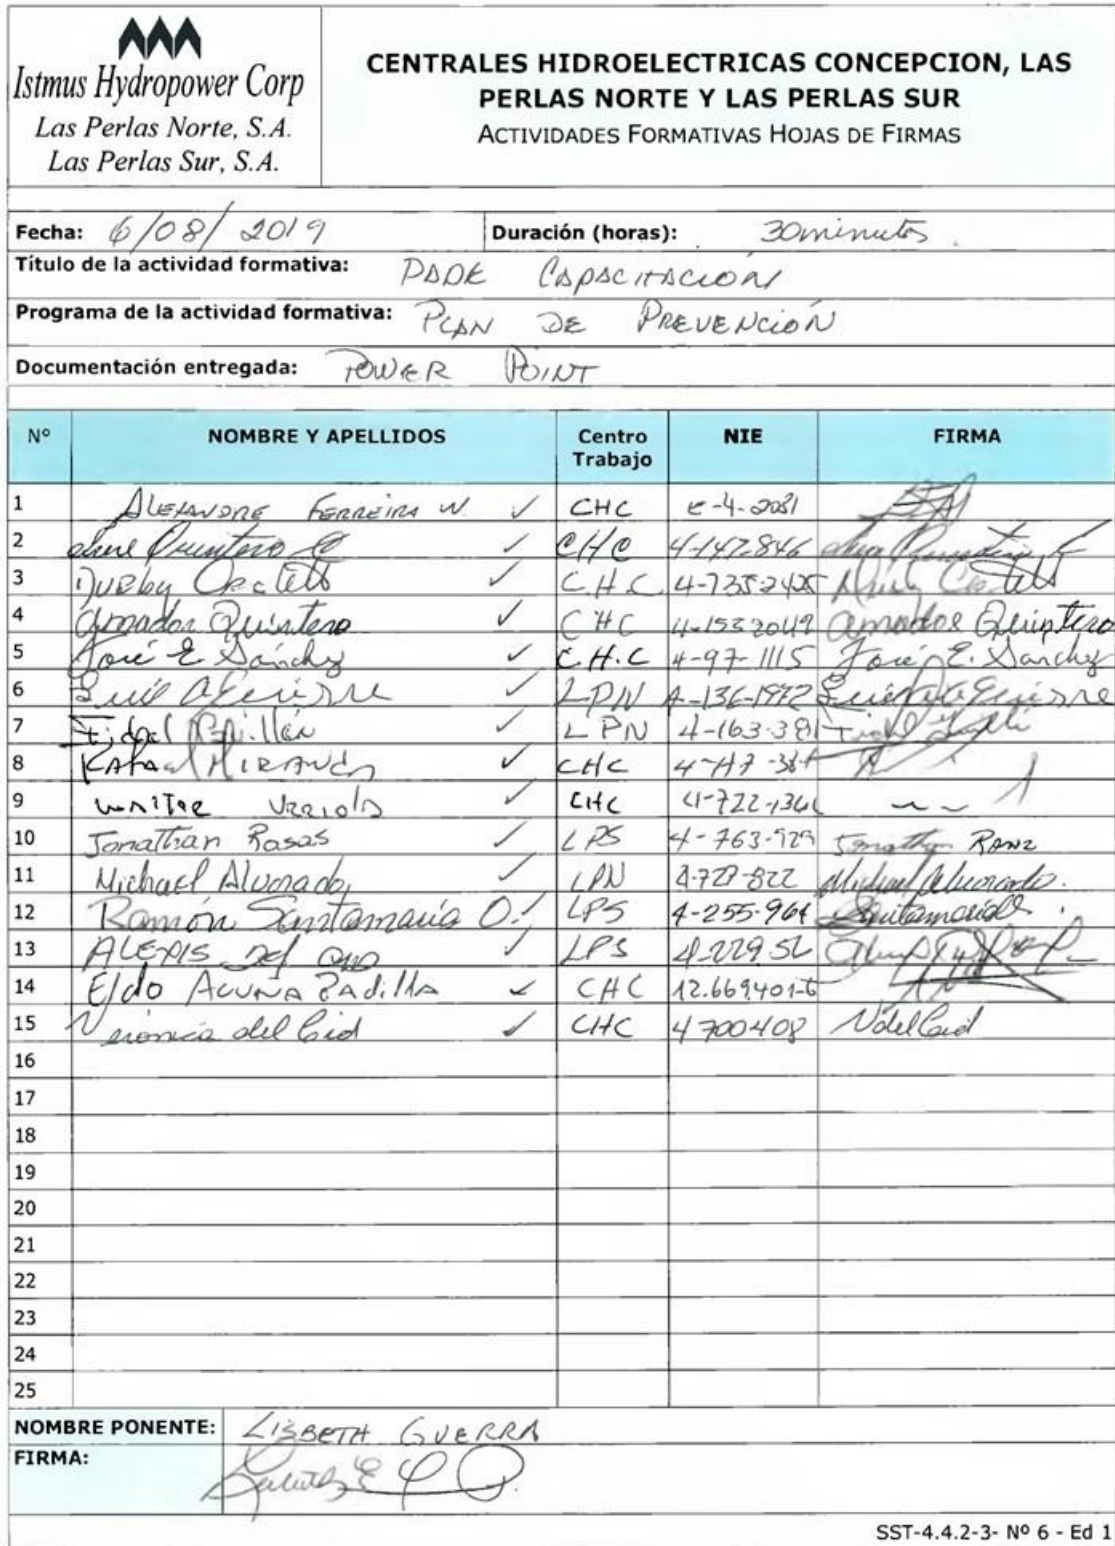 Istmus Hydropower Corp
Las Perlas Norte, S.A.
Las Perlas Sur, S.A.
CENTRALES HIDROELECTRICAS CONCEPCION, LAS
PERLAS NORTE Y LAS PERLAS SUR
ACTIVIDADES FORMATIVAS HOJAS DE FIRMAS
Fecha: 6/08/2019 Duración (horas): 30 minutos
Título de la actividad formativa: PADE CAPACITACIÓN
Programa de la actividad formativa: PLAN DE PREVENCIÓN
Documentación entregada: POWER POINT
Nº NOMBRE Y APELLIDOS Centro Trabajo NIE FIRMA
1 ALEJANDRE FERREIRA N ✓ CHC E-4-2031
2 Quintero ✓ CHC 4-147-846
3 ✓ C.H.C
4 Amador Quintero ✓ CHC Amador Quintero
5 José E Sánchez ✓ C.H.C 4-97-1115 José E. Sánchez
6 ✓ LPN
7 Fidel ✓ LPN 4-163-381
8 Rafael MIRANDA ✓ CHC
9 ✓ CHC
10 Jonathan Rosas ✓ LPS 4-763-929 Jonathan
11 Michael Alvarado ✓ LPN Michael Alvarado
12 Ramón Santamaría O. ✓ LPS 4-255-964 Santamaría
13 ALEXIS Del ✓ LPS
14 Eldo ACUÑA Padilla ✓ CHC
15 Verónica del Cid ✓ CHC 4700408 V del Cid
16
17
18
19
20
21
22
23
24
25
NOMBRE PONENTE: LISBETH GUERRA
FIRMA:
SST-4.4.2-3- Nº 6 - Ed 1